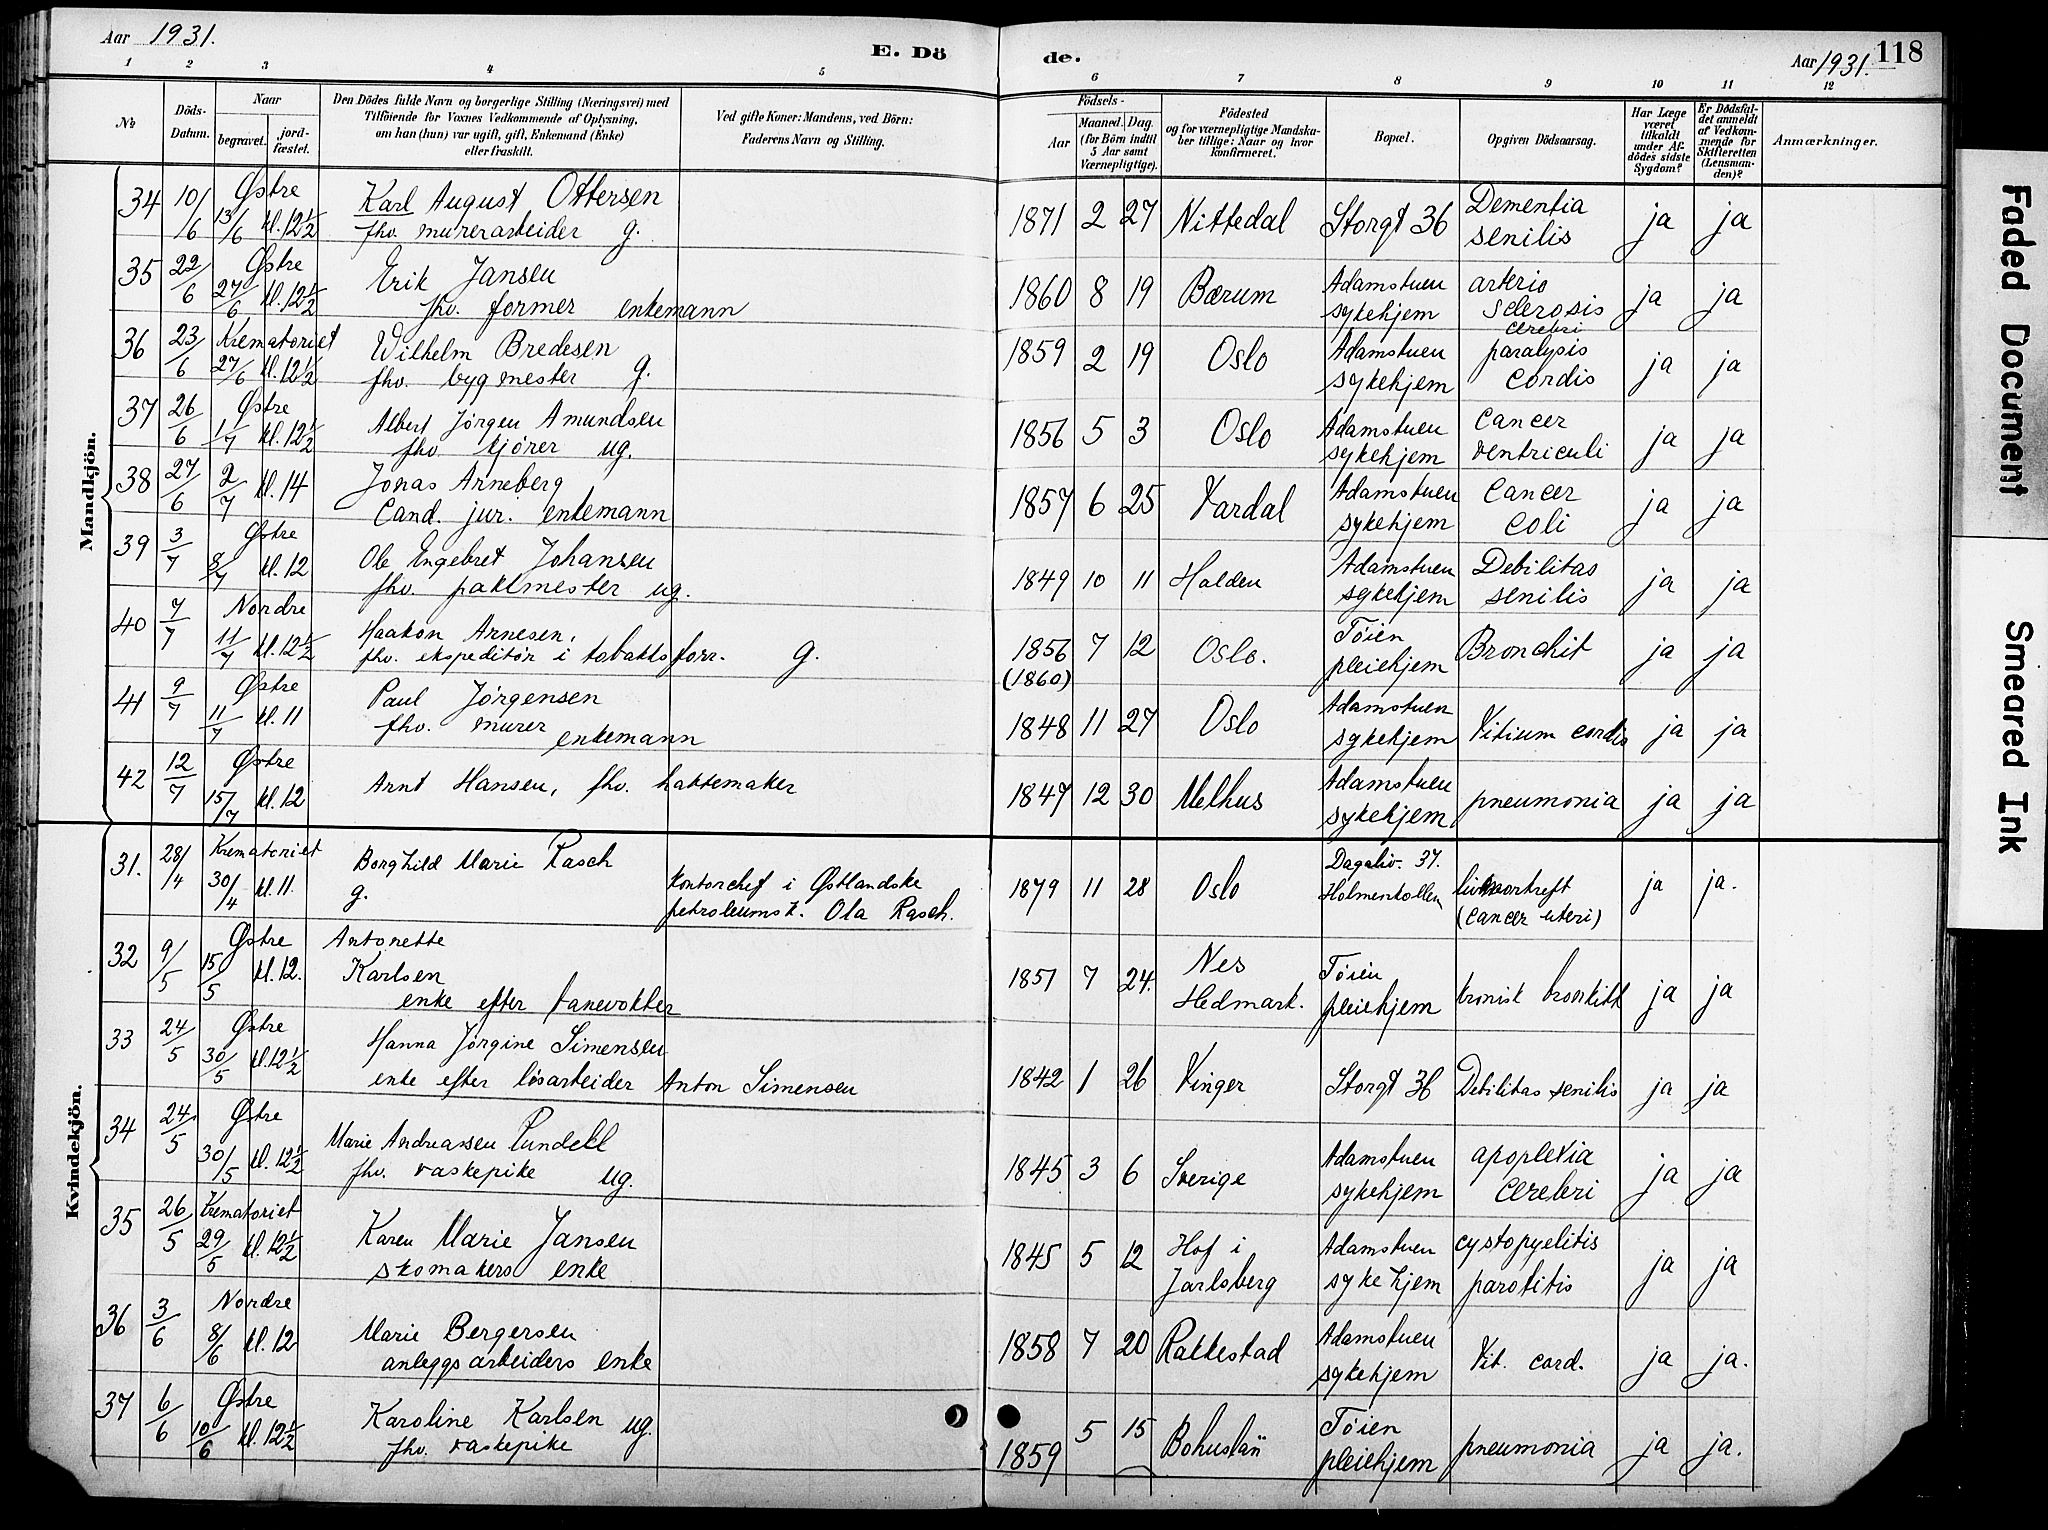 Aar 1931.
E. Dö
de.
Aar 1931. 118
1 2 3 4 5 6 7 8 9 10 11 12
No
Döds-Datum.
Naar
begravet.
jord-fæstet.
Den Dödes fulde Navn og borgerlige Stilling (Næringsvei) med
Tilföiende for Voxnes Vedkommende af Oplysning,
om han (hun) var ugift, gift, Enkemand (Enke)
eller fraskilt.
Ved gifte Koner: Mandens, ved Börn:
Faderens Navn og Stilling.
Födsels-
Aar
Maaned. Dag.
(for Börn indtil
5 Aar samt
Værnepligtige).
Födested
og for værnepligtige Mandska-
ber tillige: Naar og hvor
konfirmeret.
Bopæl.
Opgiven Dödsaarsag.
Har Læge
været
tilkaldt
under Af-
dödes sidste
Sygdom?
Er Dödsfal-
det anmeldt
af Vedkom-
mende for
Skifteretten
(Lensman-
den)?
Anmærkninger.
Mandkjön.
34 10/6 Østre 13/6 kl. 12½ Karl August Ottersen
fhv. murerarbeider g.
1871 2 27 Nittedal Storgt 36 Dementia
senilis ja ja
35 22/6 Østre 27/6 kl. 12½ Erik Jansen
fhv. former enkemann
1860 8 19 Bærum Adamstuen
sykehjem arterio
sclerosis
cerebri ja ja
36 23/6 Krematoriet 27/6 kl. 12½ Wilhelm Bredesen
fhv. bygmester g.
1859 2 19 Oslo Adamstuen
sykehjem paralysis
cordis ja ja
37 26/6 Østre 1/7 kl. 12½ Albert Jørgen Amundsen
fhv kjører ug.
1856 5 3 Oslo Adamstuen
sykehjem Cancer
ventriculi ja ja
38 27/6 2/7 kl. 14 Jonas Arneberg
Cand. jur. enkemann
1857 6 25 Vardal Adamstuen
sykehjem Cancer
coli ja ja
39 3/7 Østre 8/7 kl. 12 Ole Engebret Johansen
fhv. pakkmester ug.
1849 10 11 Halden Adamstuen
sykehjem Debilitas
senilis ja ja
40 7/7 Nordre 11/7 kl. 12½ Haakon Arnesen,
fhv. ekspeditør i tobakksforr. g.
1856
(1860) 7 12 Oslo. Tøien
pleiehjem Bronchit ja ja
41 9/7 Østre 11/7 kl. 11 Paul Jørgensen
fhv. murer
enkemann
1848 11 27 Oslo Adamstuen
sykehjem Vitium cordis ja ja
42 12/7 Østre 15/7 kl. 12 Arnt Hansen, fhv. hattemaker
1847 12 30 Melhus Adamstuen
sykehjem pneumonia ja ja
Kvindekjön.
31. 28/4 Krematoriet 30/4 kl. 11. Borghild Marie Rasch
g.
Kontorchef i Østlandske
petroleumsk. Ola Rasch.
1879 11 28 Oslo Dagaliv. 37.
Holmenkollen
(cancer uteri) ja ja.
32 9/5 Østre 15/5 kl. 12. Antonette
Karlsen
enke efter banevokter
1851 7 24. Nes
Hedmark. Tøien
pleiehjem kronisk bronkitt ja ja
33 24/5 Østre 30/5 kl. 12½ Hanna Jørgine Simensen
enke efter løsarbeider Anton Simensen
1842 1 26 Vinger Storgt 36 Debilitas senilis ja ja
34 24/5 Østre 30/5 kl. 12½ Marie Andreassen Pundell
fhv. vaskepike ug.
1845 3 6 Sverige Adamstuen
sykehjem apoplexia
cerebri ja ja
35 26/5 Krematoriet 29/5 kl. 12½ Karen Marie Jansen
skomakers enke
1845 5 12 Hof i
Jarlsberg Adamstuen
sykehjem cystopyelitis
parotitis ja ja
36 3/6 Nordre 8/6 kl. 12 Marie Bergersen
anleggsarbeiders enke
1858 7 20 Rakkestad Adamstuen
sykehjem Vit. cord. ja ja.
37 6/6 Østre 10/6 kl. 12½ Karoline Karlsen ug.
fhv. vaskepike
1859 5 15 Bohuslän Tøien
pleiehjem pneumonia ja ja.
Faded Document
Smeared Ink